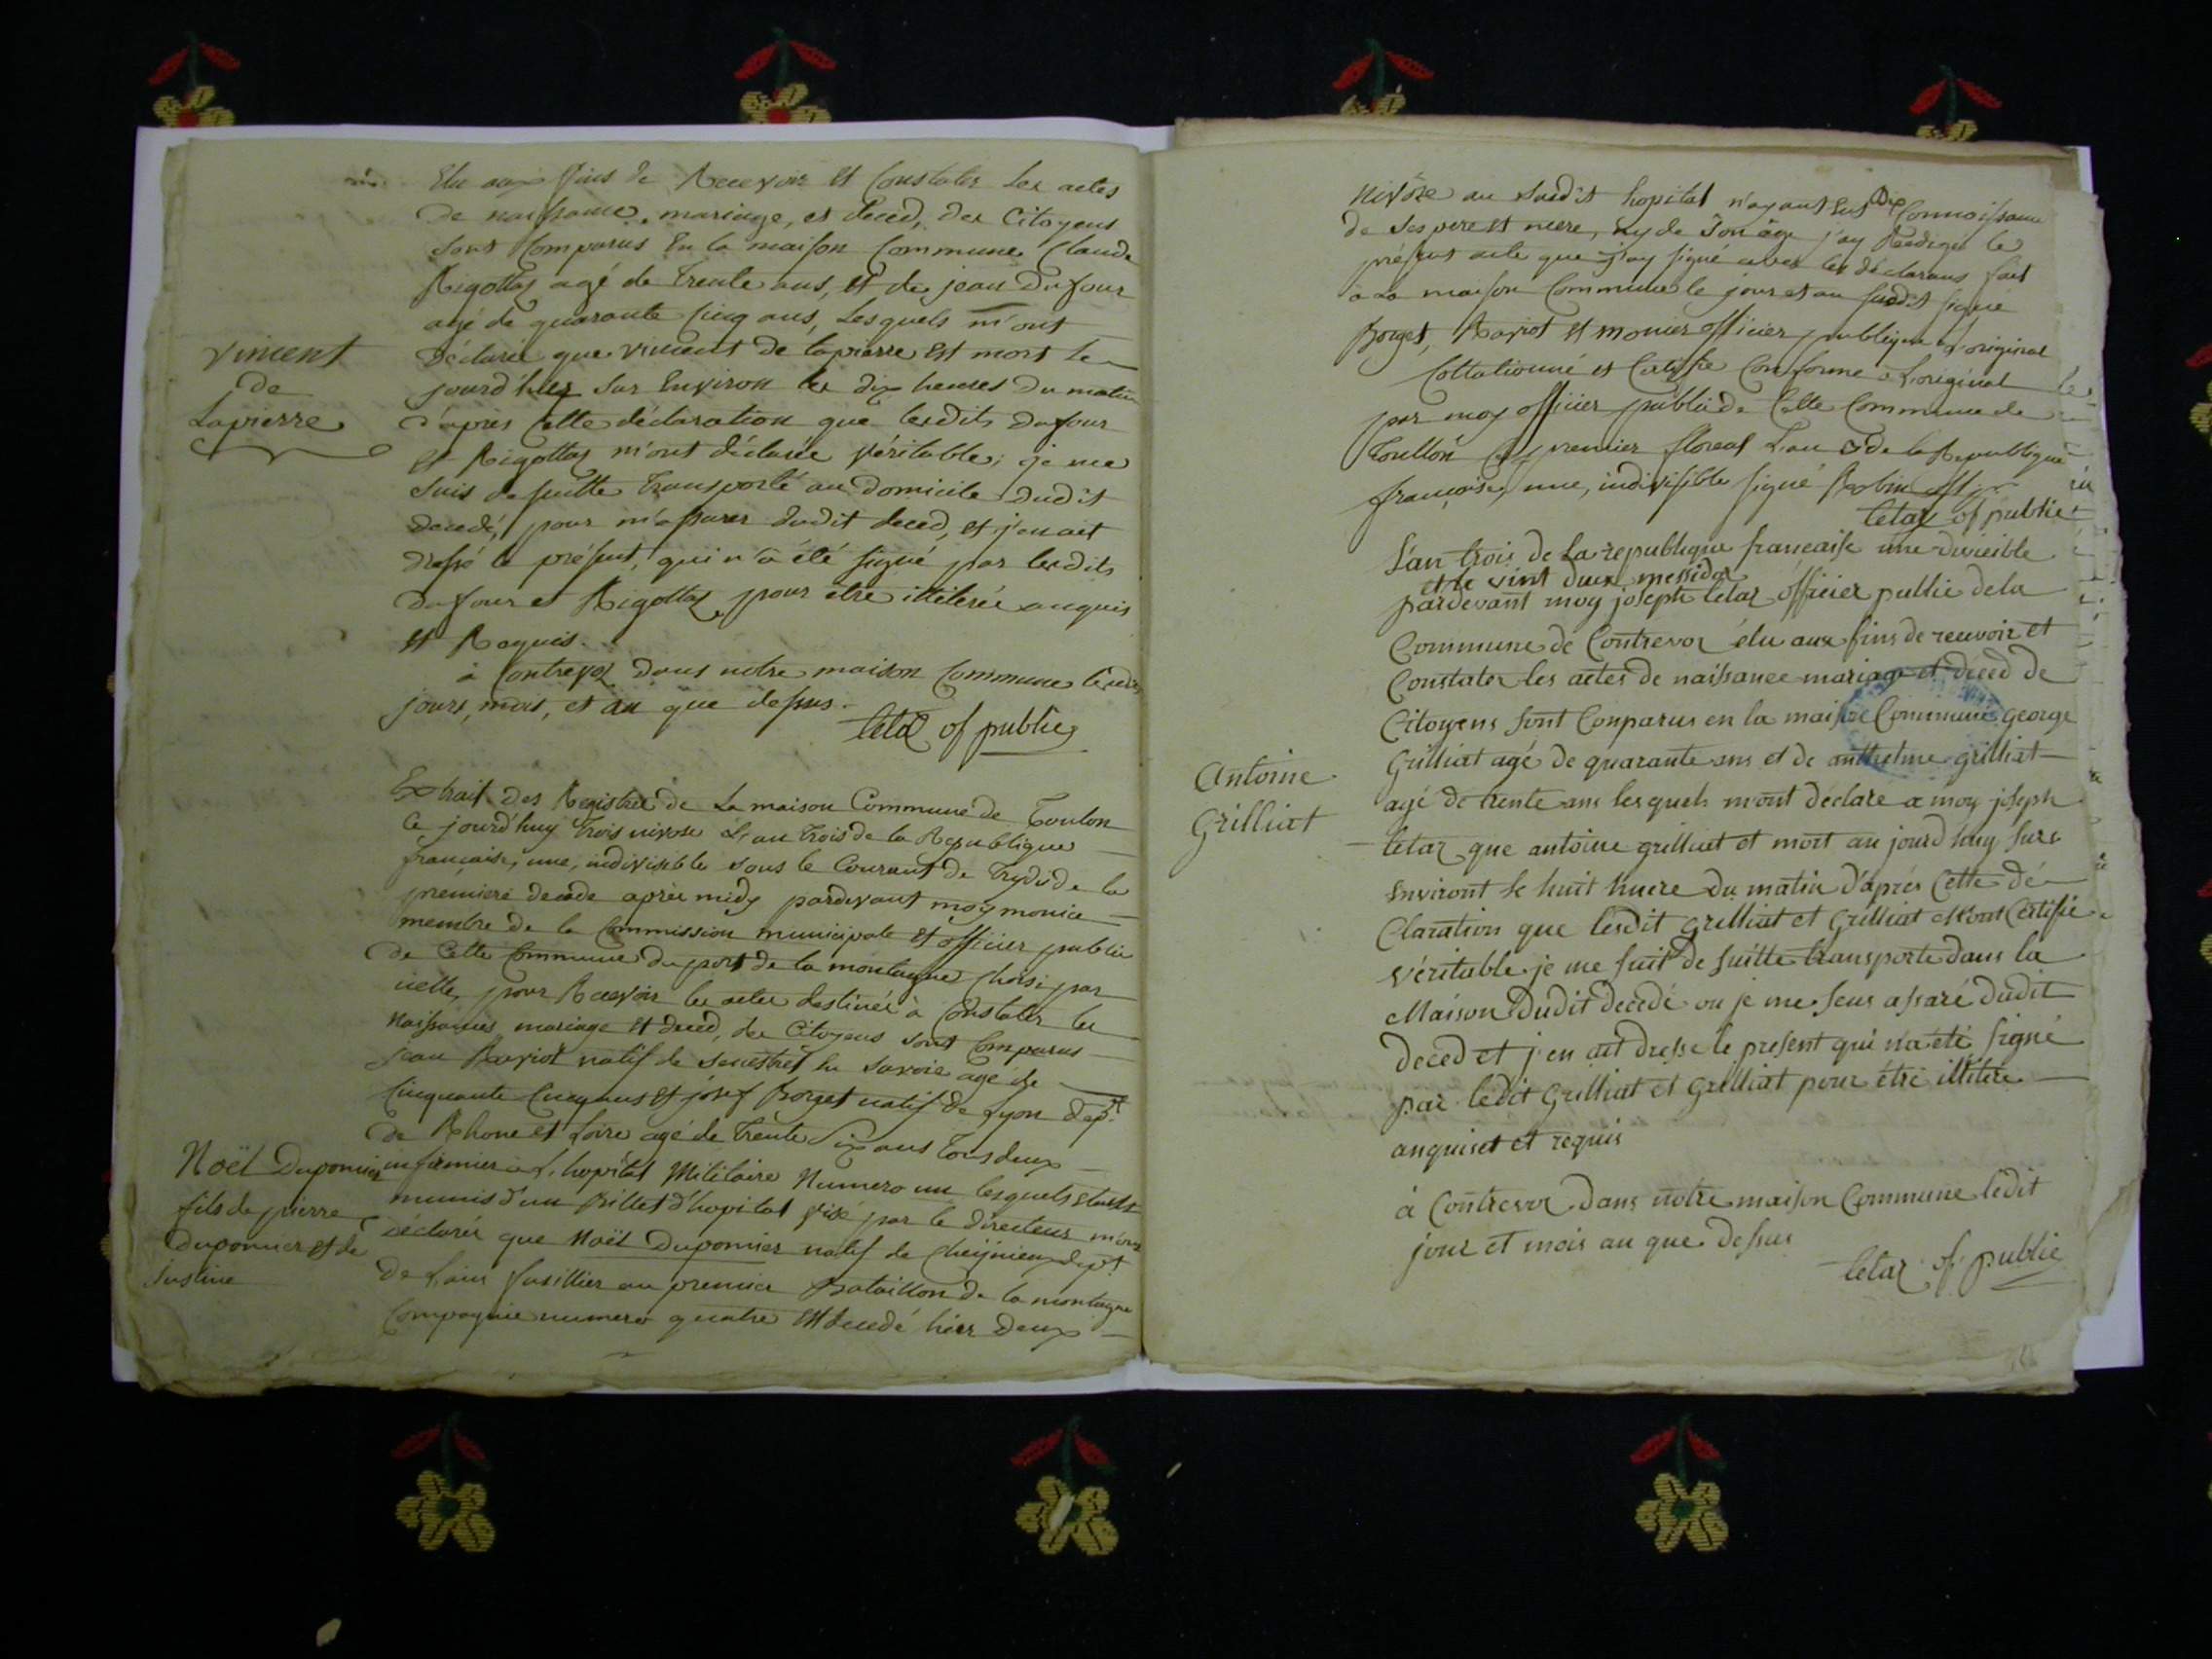 Elu aux fins de Recevoir et Constater les actes
de naissance, mariage, et deced, des Citoyens
sont Comparus En la maison Commune Claude
Rigottaz agé de trente ans, et de jean Dufour
agé de quarante Cinq ans, lesquels m'ont
Déclarée que vincent de lapierre est mort le
jourd'huy sur Environ les dix heures du matin
vincent
de
Lapierre
d'après cette déclaration que lesdits Dufour
et Rigottaz m'ont déclarée véritable; je me
suis de suitte transporté au domicile dudit
decedé, pour m'assurer dudit deced, et j'en ait
dressé le présent, qui n'a été signé par lesdits
Dufour et Rigottaz pour etre illiterée anquis
et Raquis.
à Contrevoz dans notre maison Commune lesdits
jours, mois, et an que dessus.
letaz of public
Extrait des Registre de La maison Commune de Toulon
Ce jourd'huy trois nivose L'an trois de la Republique
française, une, indivisible sous le Courant de Trydi de la
premiere decade après midy pardevant moy monier
membre de la Commission municipale et officier public
de Cette Commune du port de la montagne Choisi par
icelle, pour Recevoir les actes destinés à Constater les
naissances mariage et deced, des Citoyens sont Comparus
jean Raviot natif de en Savoie agé de
Cinquante Cinq ans et josef Borget natif de Lyon dept
de Rhone et Loire agé de trente Six ans tous deux
infirmier à L'hopital Militaire Numero un lesquels étants
munis d'un Billet d'hopital visé par le directeur m'ont
déclarés que Noël Duponier natif de Cheijnieu dept
de Lain fusillier au premier Bataillon de la montagne
Compagnie numero quatre est decedé hier deux
Noël Duponier
fils de pierre
Duponier et de
Justine
nivôse au susdit hopital n'ayant Eus Connoissance
de ses pere et mere, ny de son âge j'ay Redigée le
présent acte que j'ay signé avec les déclarans fait
à La maison Commune le jour et an susdit signé
Borget, Raviot et monier officier publique à l'original
Collationné et Certifié Conforme à L'original
par moy officier public de Cette Commune de
Toullon Ce premier floreal L'an 3 de la Republique
françoise, une, indivisible signé Robin
letaz of public
L'an trois de La republique francaise une diviseible
et le vint deux messidor
pardevant moy joseph letaz officier public de la
Commune de Contrevoz élu aux fins de recevoir et
Constater les actes de naissance mariage et deced de
Citoyens sont Conparus en la maison Commune george
Grilliat agé de quarante ans et de anthelme grilliat
agé de trente ans lesquels mont déclaré a moy joseph
letaz que antoine grilliat et mort au jourd huy sure
Environt le huit huere du matin d'après Cette dé
Claration que lesdit Grilliat et Grilliat Mont Certifié
Antoine
Grilliat
véritable je me suit de suitte transporte dans la
Maison dudit decedé ou je me seus assaré dudit
deced et j'en ait dresse le present qui n'a été signé
par ledit Grilliat et Grilliat pour étre illitéré
anquiset et requis
à Contrevoz dans notre maison Commune ledit
jour et mois an que dessus
letaz of public